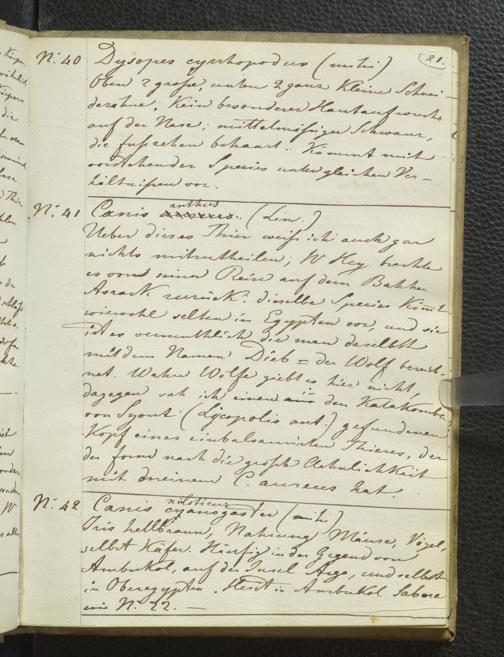 21.
N: 40 Dysopes cyrrhopodus (mihi)
Oben 2 große, unten 2 ganz kleine Schnei-
dezähne; Kein besonderer Hautauswuchs
auf der Nase; mittelmäßiger Schwanz,
die behaart. Kommt mit
vorstehender Species unter gleichen Ver-
hältnißen vor.
N: 41 Canis anthus (Lin.)
Ueber dieses Thier weiß ich auch gar
nichts mitzutheilen; H Hey brachte
es von seiner Reise auf dem Bahher
Asrack zurück. dieselbe Species kömt
wiewohl selten in Egypten vor, und sie
ist es vermuthlich, die man daselbst
mit dem Namen Dieb = der Wolf bezeich-
net. Wahre Wölfe giebt es hier nicht,
dagegen sah ich einen aus den Katakomben
von Syout (Lycopolis ant.) gefundenen
Kopf eines einbalsamirten Thieres, der
der form nach die größte Aehnlichkeit
mit C. aureus hat.
N: 42 Canis niloticus cyanogaster (mihi)
Iris hellbraun, Nahrung Mäuse, Vögel,
selbst Käfer. Häufig in der Gegend von
Ambukol, auf der Insel Argo, und selbst
in Oberegypten. Heist in Ambukol Sabare
wie N: 22. —